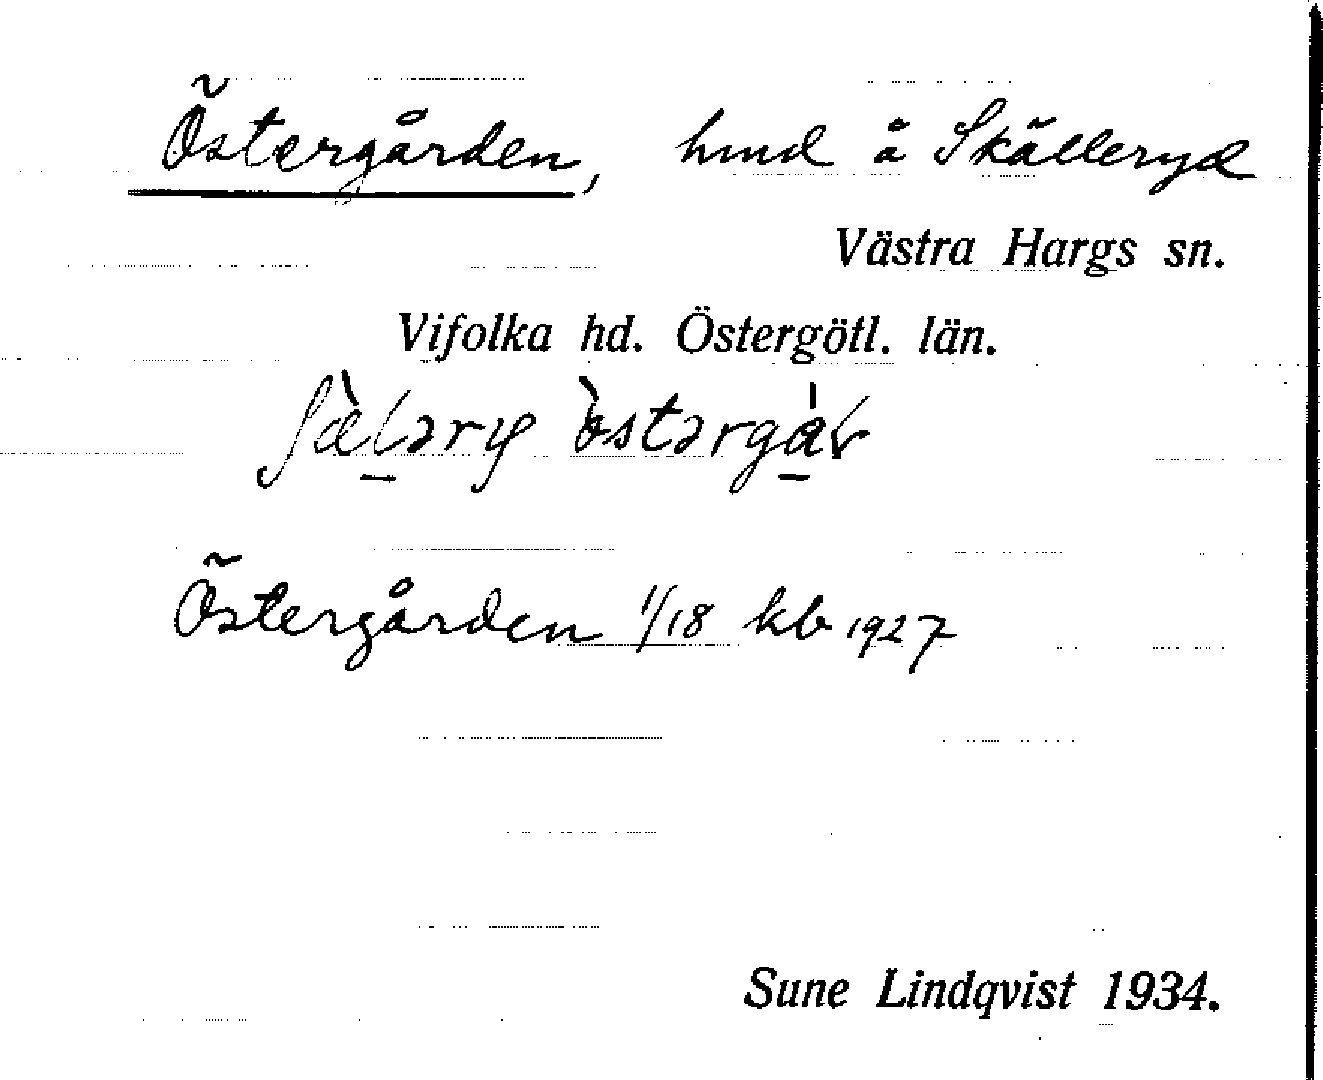 Östergården, hmd å Skälleryd
Västra Hargs sn.
Vifolka hd. Östergötl. län.
Östergården 1/18 kb 1927
Sune Lindqvist 1934.